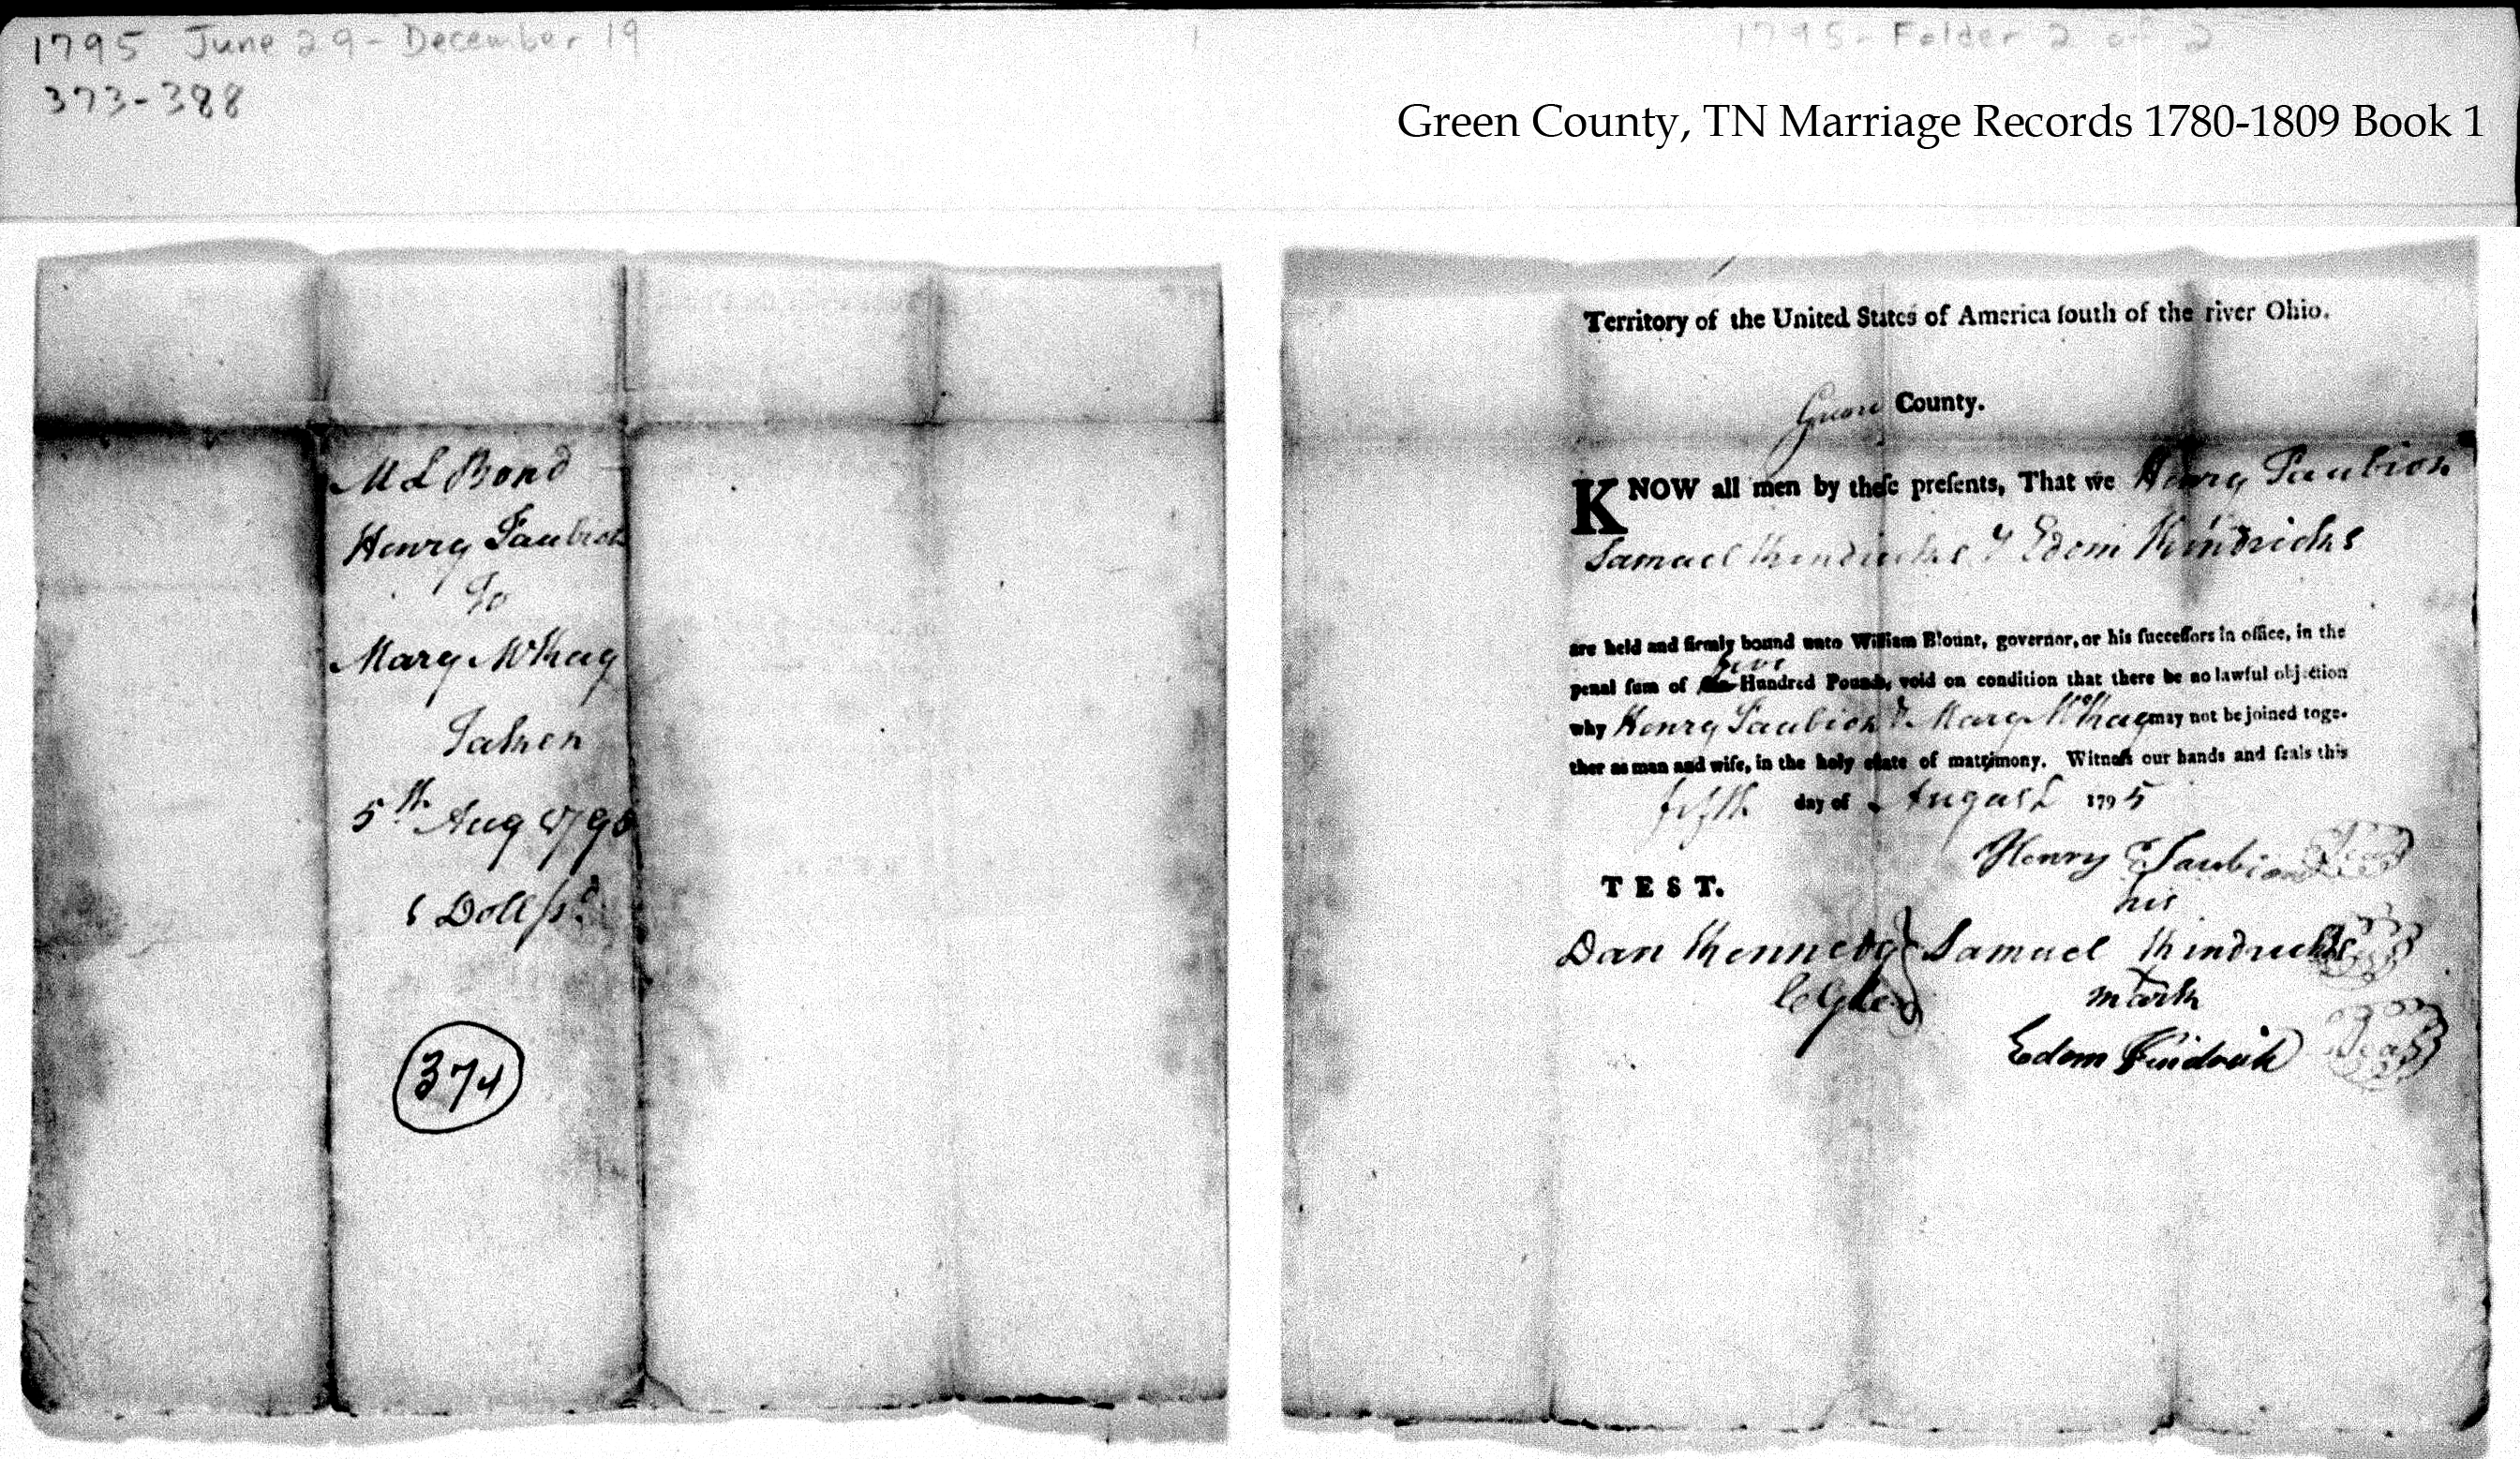 1795 June 29 - December 19
1795 - Folder 2 of 2
373-388
Green County, TN Marriage Records 1780-1809 Book 1
M L Bond
Henry Faubion
To
Mary McKay
Taken
5th Aug 1795
Doll pd
374
Territory of the United States of America ſouth of the river Ohio.
Green County.
KNOW all men by theſe preſents, That we Henry Faubion
Samuel Kindricks & Edom Kindricks
are held and firmly bound unto William Blount, governor, or his ſucceſſors in office, in the
five
penal ſum of Hundred Pounds, void on condition that there be no lawful objection
why Henry Faubion & Mary McKay may not be joined toge-
ther as man and wife, in the holy eſtate of matrimony. Witneſs our hands and ſeals this
fifth day of August 1795
Henry Faubion Seal
his
TEST.
Dan Kennedy Samuel Kindricks
mark
Edom Kindrick Seal